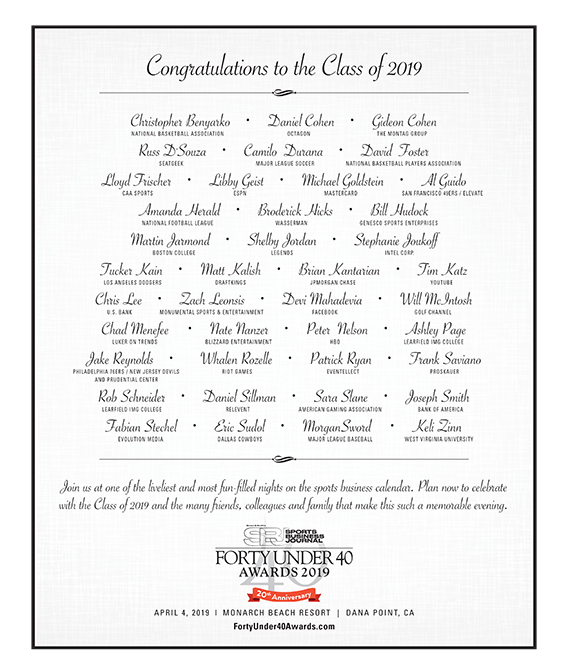 Congratulations to the Class of 2019
Christopher Benyarko • Daniel Cohen • Gideon Cohen
NATIONAL BASKETBALL ASSOCIATION OCTAGON THE MONTAG GROUP
Russ D'Souza • Camilo Durana • David Foster
SEATGEEK MAJOR LEAGUE SOCCER NATIONAL BASKETBALL PLAYERS ASSOCIATION
Lloyd Frischer • Libby Geist • Michael Goldstein • Al Guido
CAA SPORTS ESPN MASTERCARD SAN FRANCISCO 49ERS / ELEVATE
Amanda Herald • Broderick Hicks • Bill Hudock
NATIONAL FOOTBALL LEAGUE WASSERMAN GENESCO SPORTS ENTERPRISES
Martin Jarmond • Shelby Jordan • Stephanie Joukoff
BOSTON COLLEGE LEGENDS INTEL CORP.
Tucker Kain • Matt Kalish • Brian Kantarian • Tim Katz
LOS ANGELES DODGERS DRAFTKINGS JPMORGAN CHASE YOUTUBE
Chris Lee • Zach Leonsis • Devi Mahadevia • Will McIntosh
U.S. BANK MONUMENTAL SPORTS & ENTERTAINMENT FACEBOOK GOLF CHANNEL
Chad Menefee • Nate Nanzer • Peter Nelson • Ashley Page
LUKER ON TRENDS BLIZZARD ENTERTAINMENT HBO LEARFIELD IMG COLLEGE
Jake Reynolds • Whalen Rozelle • Patrick Ryan • Frank Saviano
PHILADELPHIA 76ERS / NEW JERSEY DEVILS RIOT GAMES EVENTELLECT PROSKAUER
AND PRUDENTIAL CENTER
Rob Schneider • Daniel Sillman • Sara Slane • Joseph Smith
LEARFIELD IMG COLLEGE RELEVENT AMERICAN GAMING ASSOCIATION BANK OF AMERICA
Fabian Stechel • Eric Sudol • Morgan Sword • Keli Zinn
EVOLUTION MEDIA DALLAS COWBOYS MAJOR LEAGUE BASEBALL WEST VIRGINIA UNIVERSITY
Join us at one of the liveliest and most fun-filled nights on the sports business calendar. Plan now to celebrate
with the Class of 2019 and the many friends, colleagues and family that make this such a memorable evening.
SBJ SPORTS
BUSINESS
JOURNAL
40
FORTY UNDER 40
AWARDS 2019
20th Anniversary
APRIL 4, 2019 | MONARCH BEACH RESORT | DANA POINT, CA
FortyUnder40Awards.com